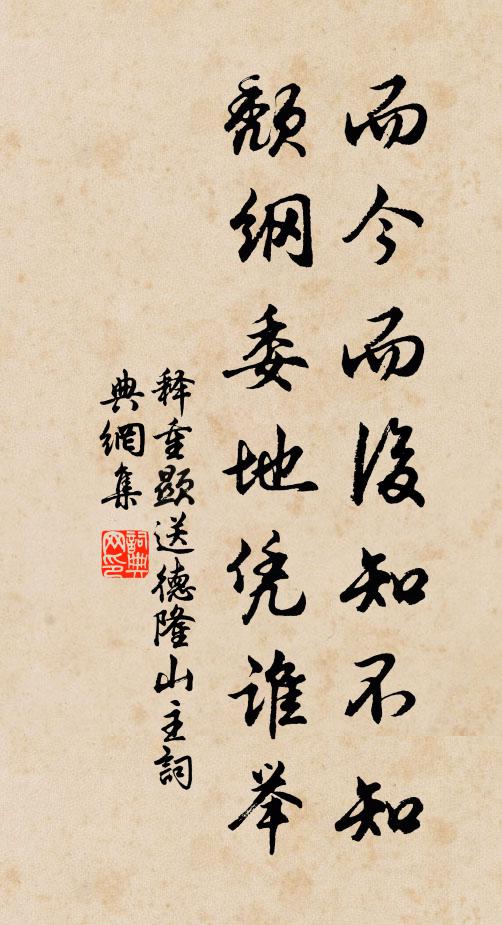 而今而後知不知
颓纲委地凭谁举
释重顯送德隆山主詞
典網集
詞典网印